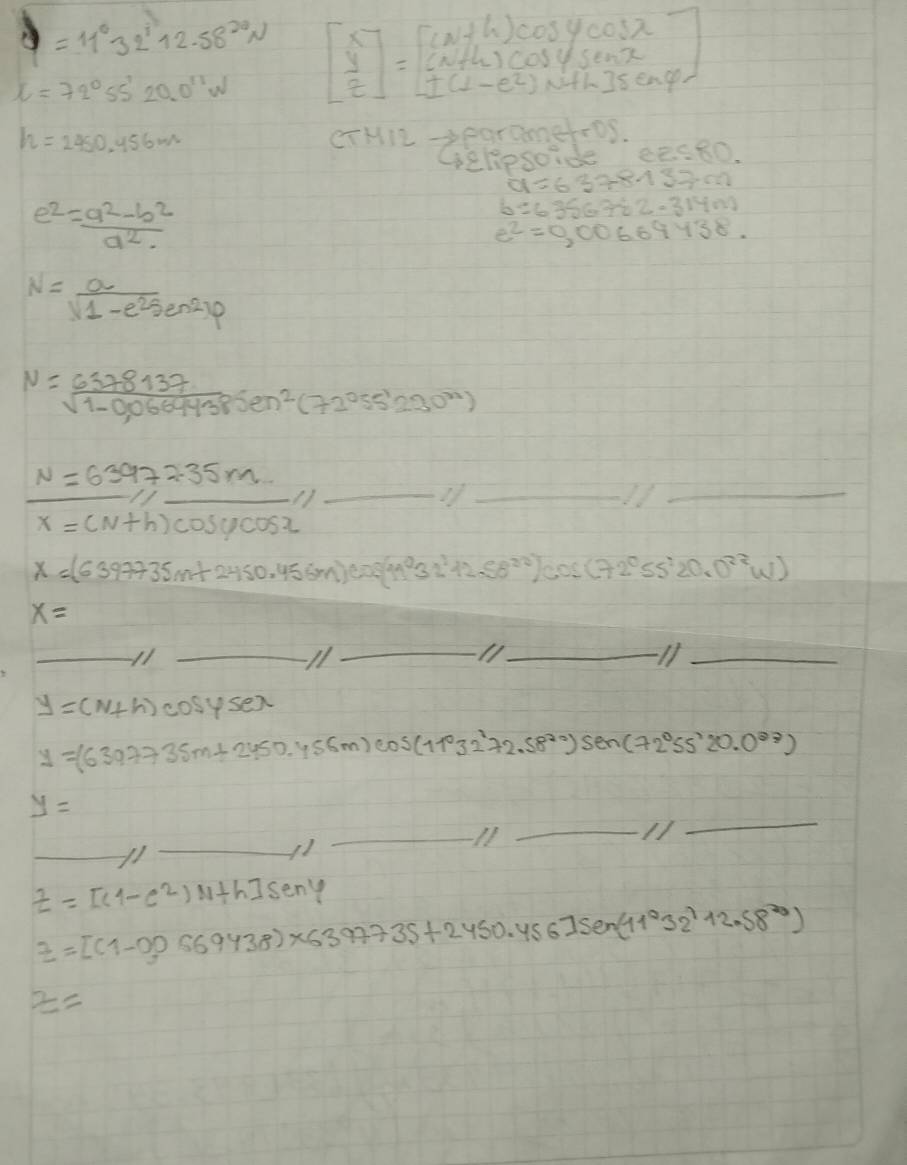 φ = 11° 32' 12.58'' N
λ = 72° 55' 20.0'' W
h = 2450.456m
[x y z] = [(N+h) cosφ cosλ
(N+h) cosφ senλ
[(1-e²) N+h] senφ]
CTM12 → parametros.
↳ elipsoide
a = 6378137m
e² = 0,00669438.
e² = a² - b² / a².
N = a / √1 - e² sen² φ
N = 6378137 / √1 - 0,0669438 sen² (72° 55' 20.0'')
N = 6397735m
x = (N+h) cosφ cosλ
x = (6397735m + 2450.456m) cos(11° 32' 12.58'') cos(72° 55' 20.0'' W)
x =
y = (N+h) cosφ senλ
y = (6397735m + 2450.456m) cos(11° 32' 12.58'') sen(72° 55' 20.0'')
y =
z = [(1-e²) N+h] senφ
z = [(1-0,0669438) × 6397735 + 2450.456] sen(11° 32' 12.58'')
z =